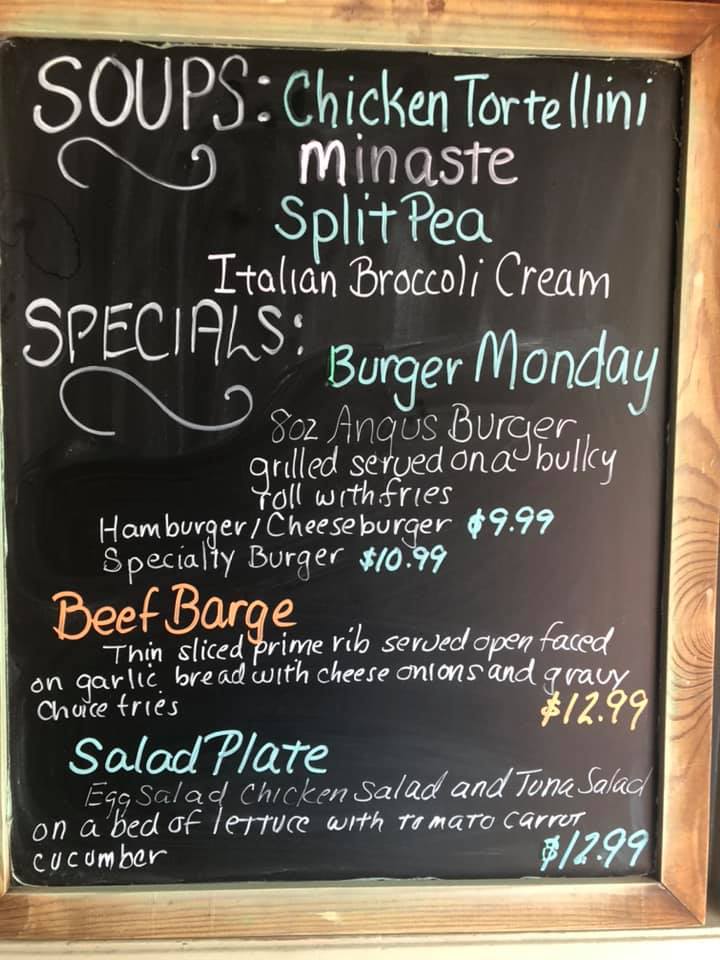 SOUPS: Chicken Tortellini
Minaste
Split Pea
Italian Broccoli Cream
SPECIALS:
Burger Monday
8oz Angus Burger
grilled served on a bulky
roll with fries
Hamburger/Cheeseburger $9.99
Specialty Burger $10.99
Beef Barge
Thin sliced prime rib served open faced
on garlic bread with cheese onions and gravy
Choice fries $12.99
Salad Plate
Egg Salad Chicken Salad and Tuna Salad
on a bed of lettuce with tomato carrot
cucumber $12.99